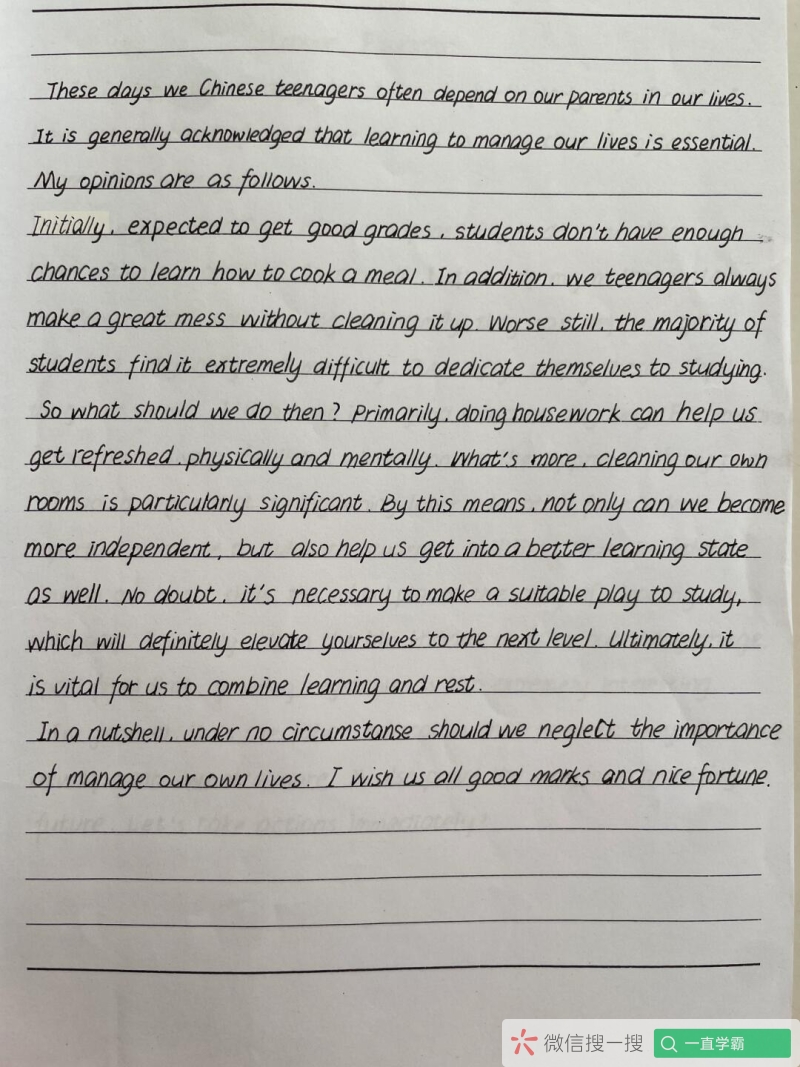 These days we Chinese teenagers often depend on our parents in our lives.
It is generally acknowledged that learning to manage our lives is essential.
My opinions are as follows.
Initially, expected to get good grades, students don't have enough
chances to learn how to cook a meal. In addition, we teenagers always
make a great mess without cleaning it up. Worse still, the majority of
students find it extremely difficult to dedicate themselves to studying.
So what should we do then? Primarily, doing housework can help us
get refreshed, physically and mentally. What's more, cleaning our own
rooms is particularly significant. By this means, not only can we become
more independent, but also help us get into a better learning state
as well. No doubt, it's necessary to make a suitable play to study,
which will definitely elevate yourselves to the next level. Ultimately, it
is vital for us to combine learning and rest.
In a nutshell, under no circumstanse should we neglect the importance
of manage our own lives. I wish us all good marks and nice fortune.
future. Let's take actions immediately!
微信搜一搜
一直学霸